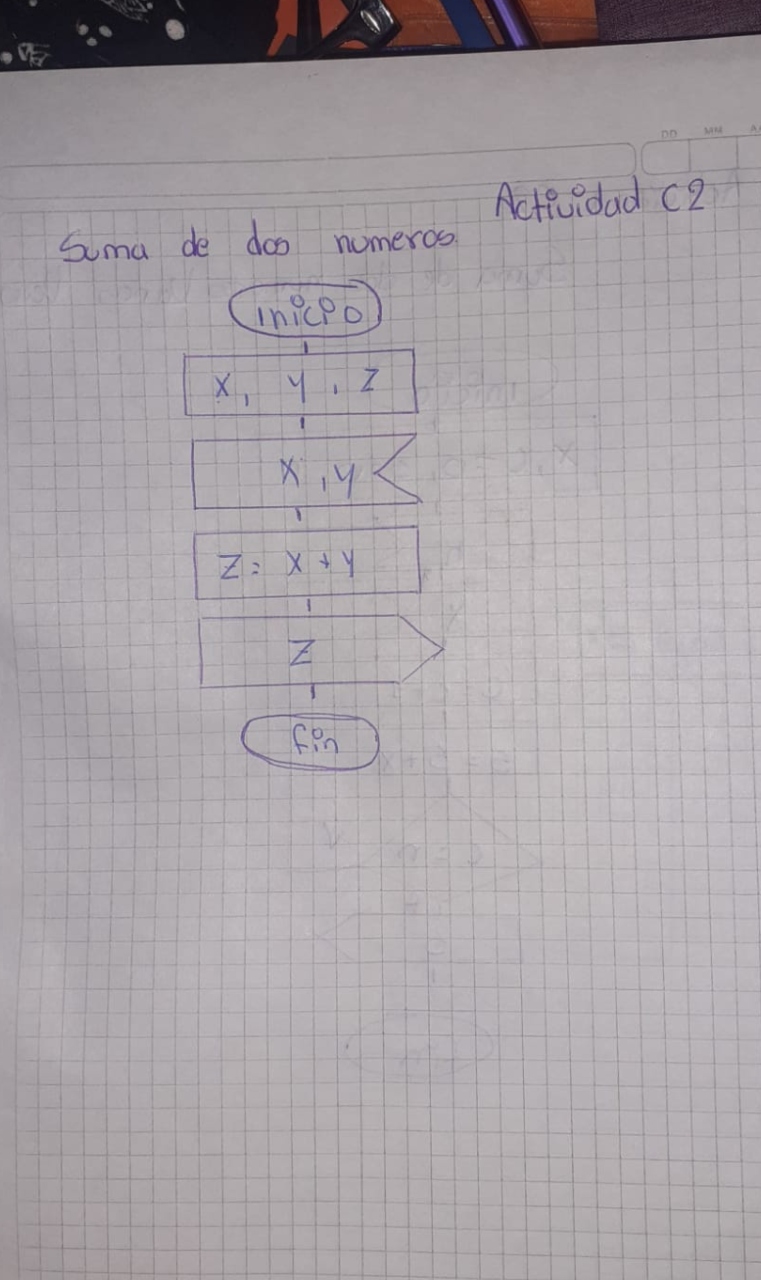 DD MM
Actividad C2
Suma de dos numeros
inicio
X, Y, Z
X, Y
Z = X + Y
Z
fin